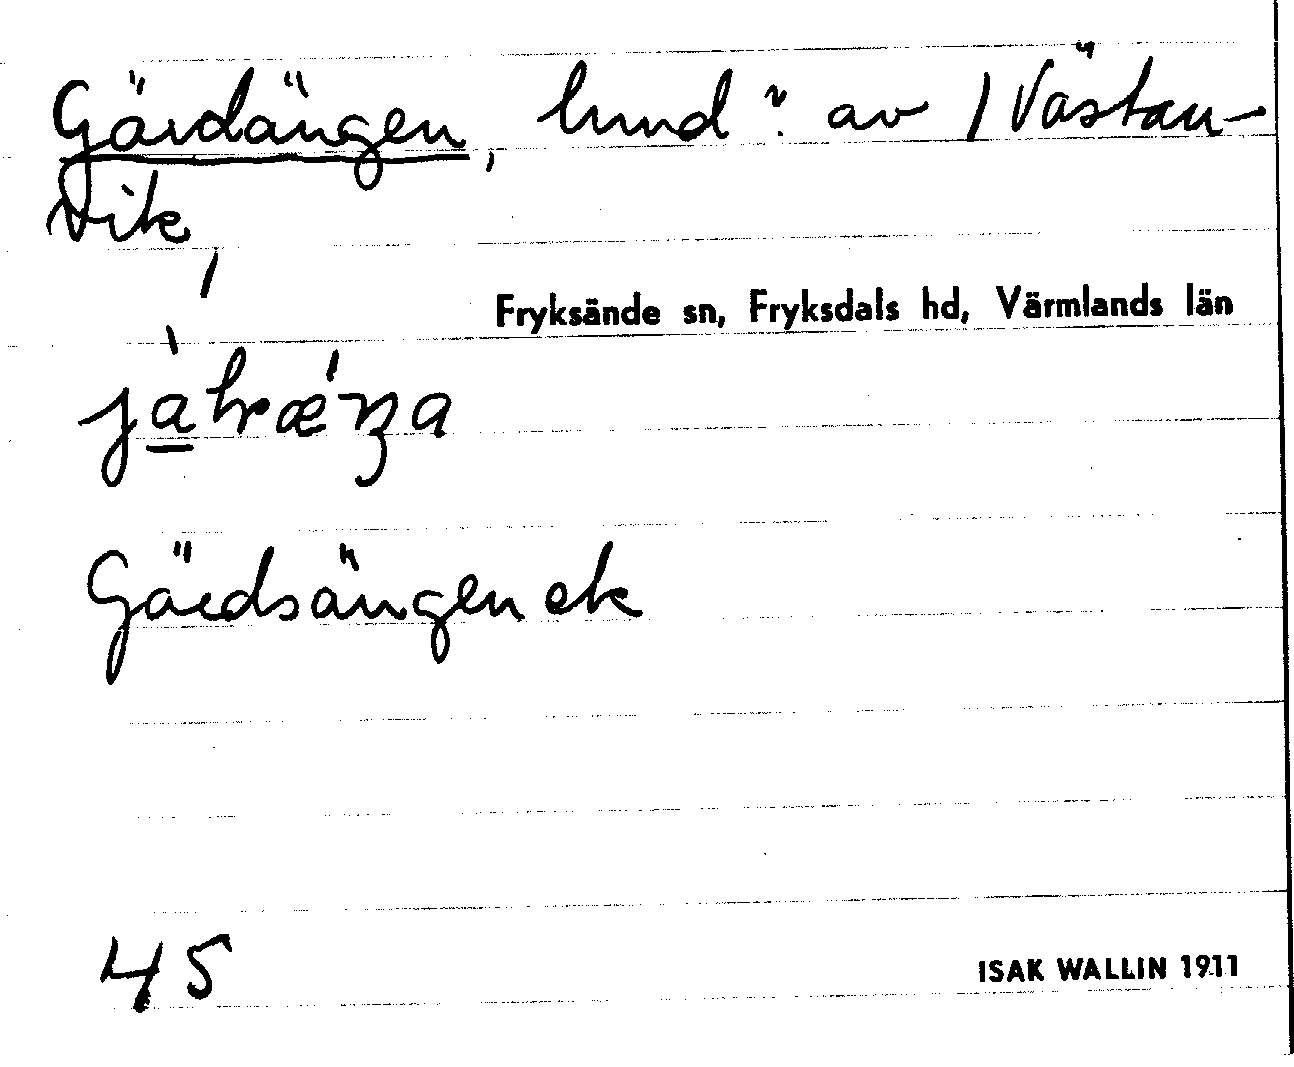 Gärdängen, lund v. av 1 Västan-
vik
Fryksände sn, Fryksdals hd, Värmlands län
Gärdsängen ek
45
ISAK WALLIN 1911